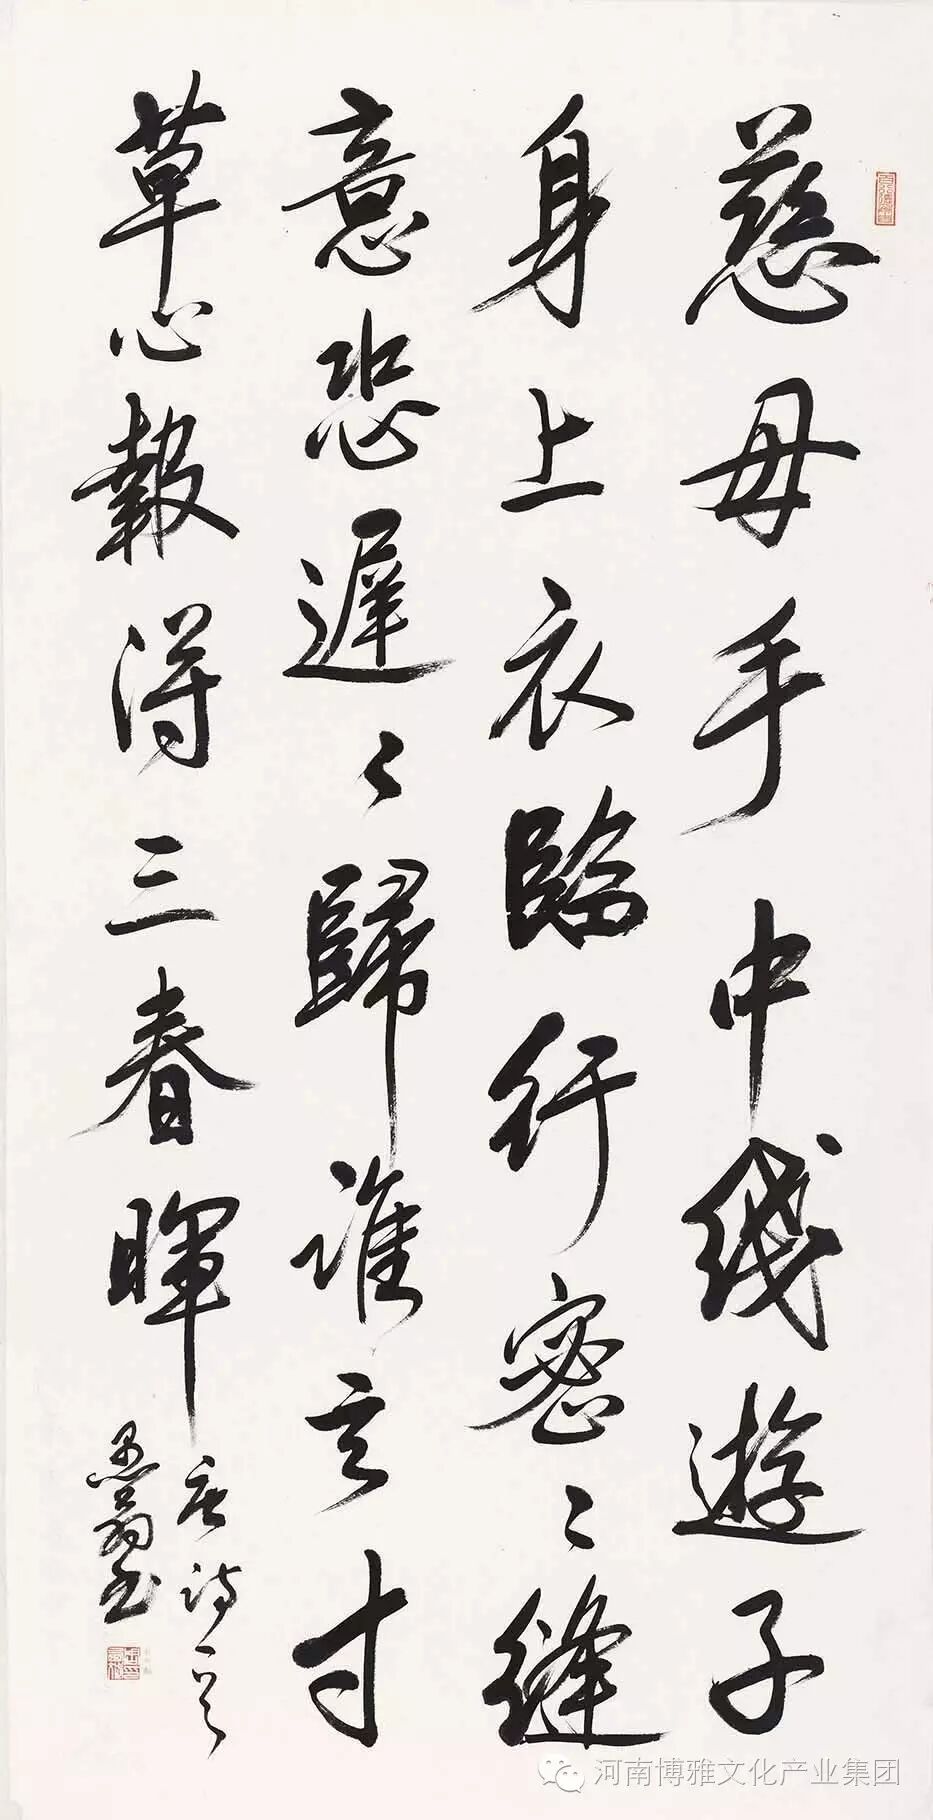 慈母手中线遊子
身上衣臨行密〻縫
意恐遲〻歸誰言寸
草心報得三春暉
唐诗一首
愚翁书
河南博雅文化产业集团